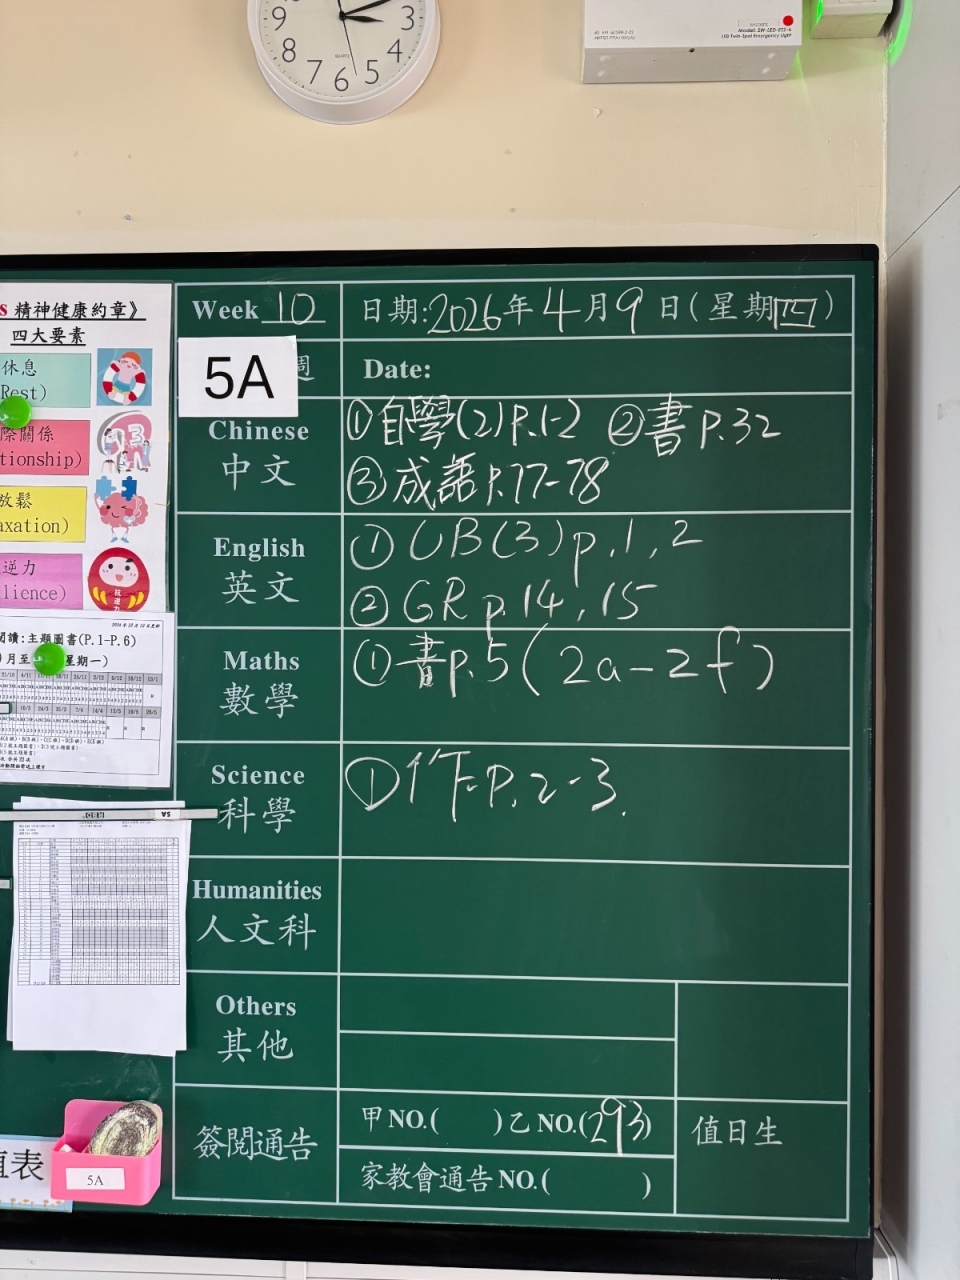 2
9
3
8
4
7
6
5
Model: SW-LED-2T3-6
LED Twin-Spot Emergency Light
S 精神健康約章》
四大要素
休息
Rest)
際關係
tionship)
放鬆
axation)
逆力
lience)
閱讀:主題圖書(P.1-P.6)
星期一)
Week 10
日期:2026年4月9日(星期四)
5A
週
Date:
Chinese
中文
①自學(2)P.1-2 ②書P.32
③成語P.77-78
English
英文
①UB(3)p.1,2
②GR p.14,15
Maths
數學
①書p.5(2a-2f)
Science
科學
①作P.2-3.
Humanities
人文科
Others
其他
簽閱通告
甲NO.( )乙NO.(293)
家教會通告NO.( )
值日生
5A
5A
直表